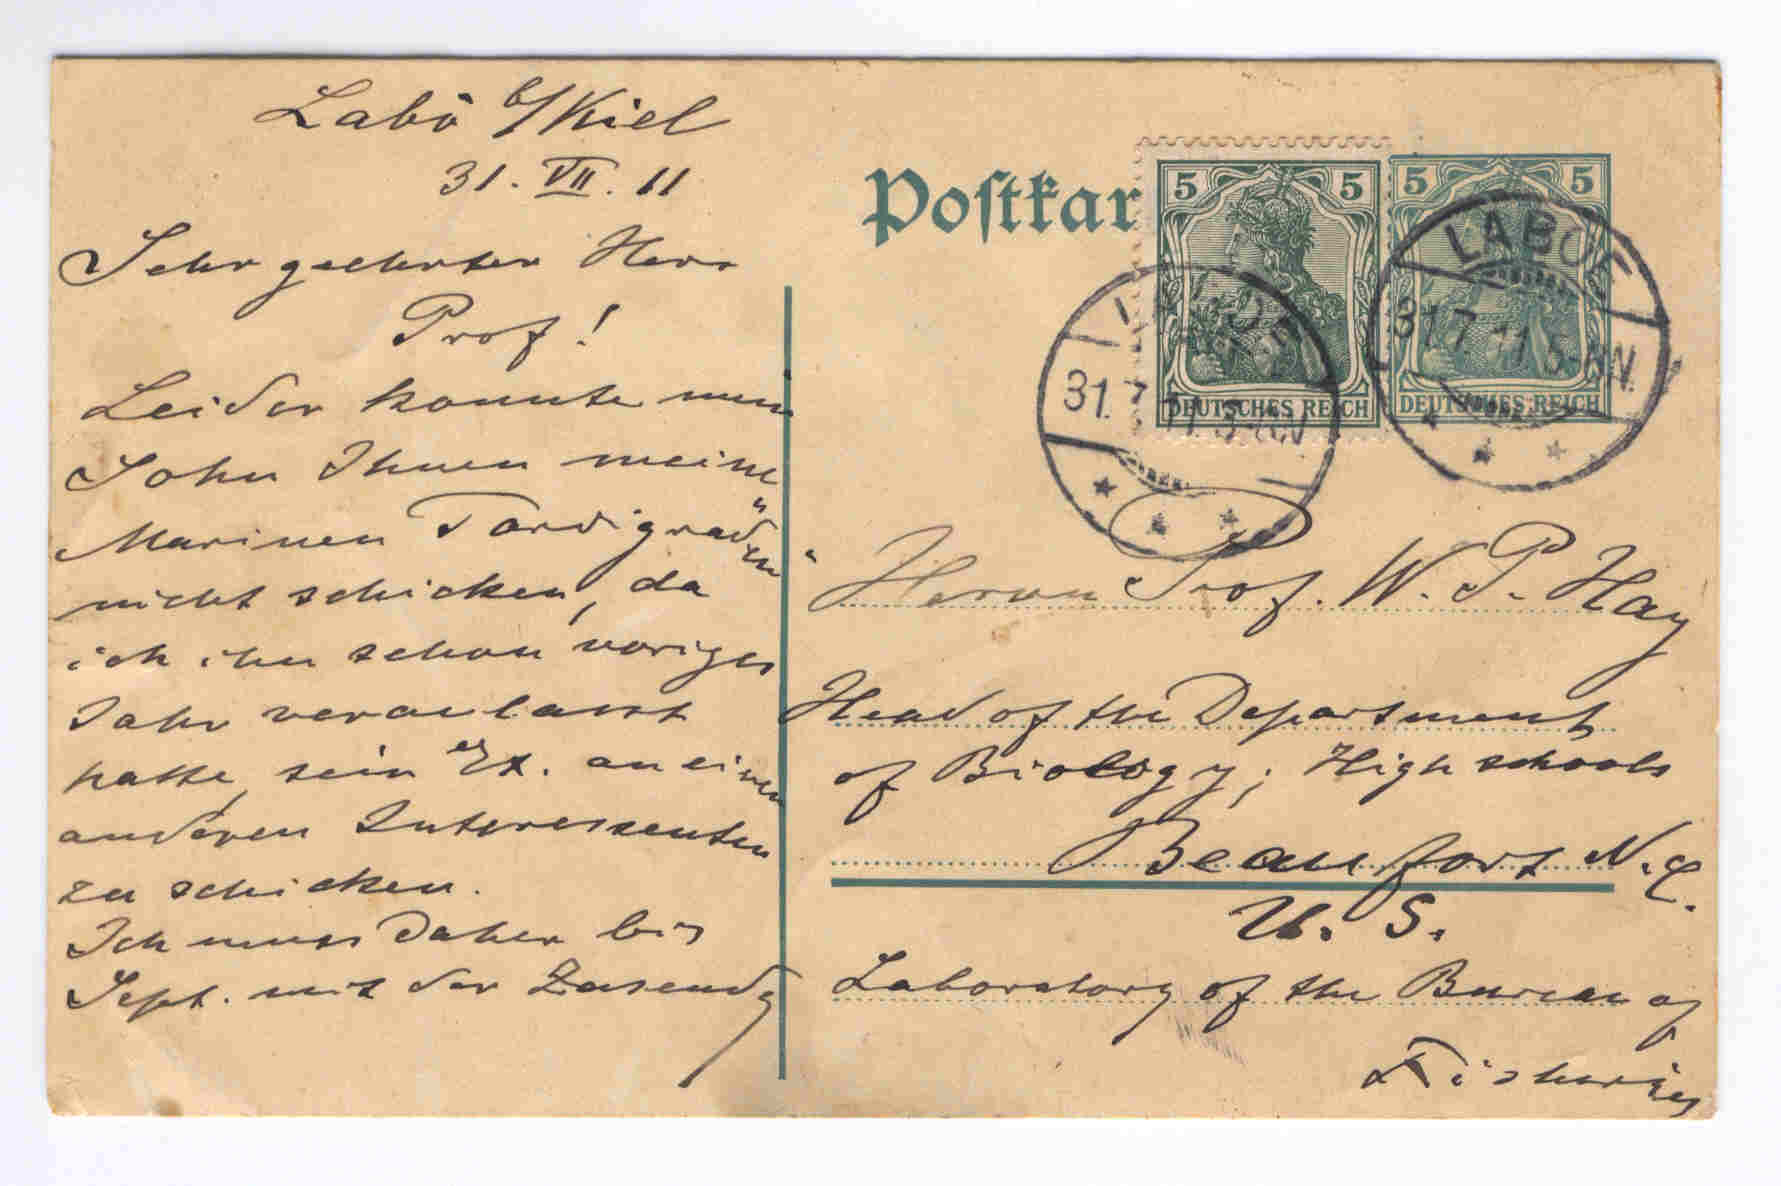 Labö b/Kiel
31. VII. 11
Sehr geehrter Herr
Prof!
Leider konnte mein
Sohn Ihnen meine
Marinen "Tardigraden"
nicht schicken, da
ich ihn schon voriges
Jahr veranlasst
hatte, sein Ex. an einen
anderen Interessenten
zu schicken.
Ich muss daher bis
Sept. mit der Zusendg
Postkar
5 5
DEUTSCHES REICH
5 5
DEUTSCHES REICH
LABOE
31.7.11.5-6N
LABOE
31.7.11.5-6N.
Herrn Prof. W. P. Hay
Head of the Department
of Biology; High schools
Beaufort N.C.
U. S.
Laboratory of the Bureau of
Fisheries